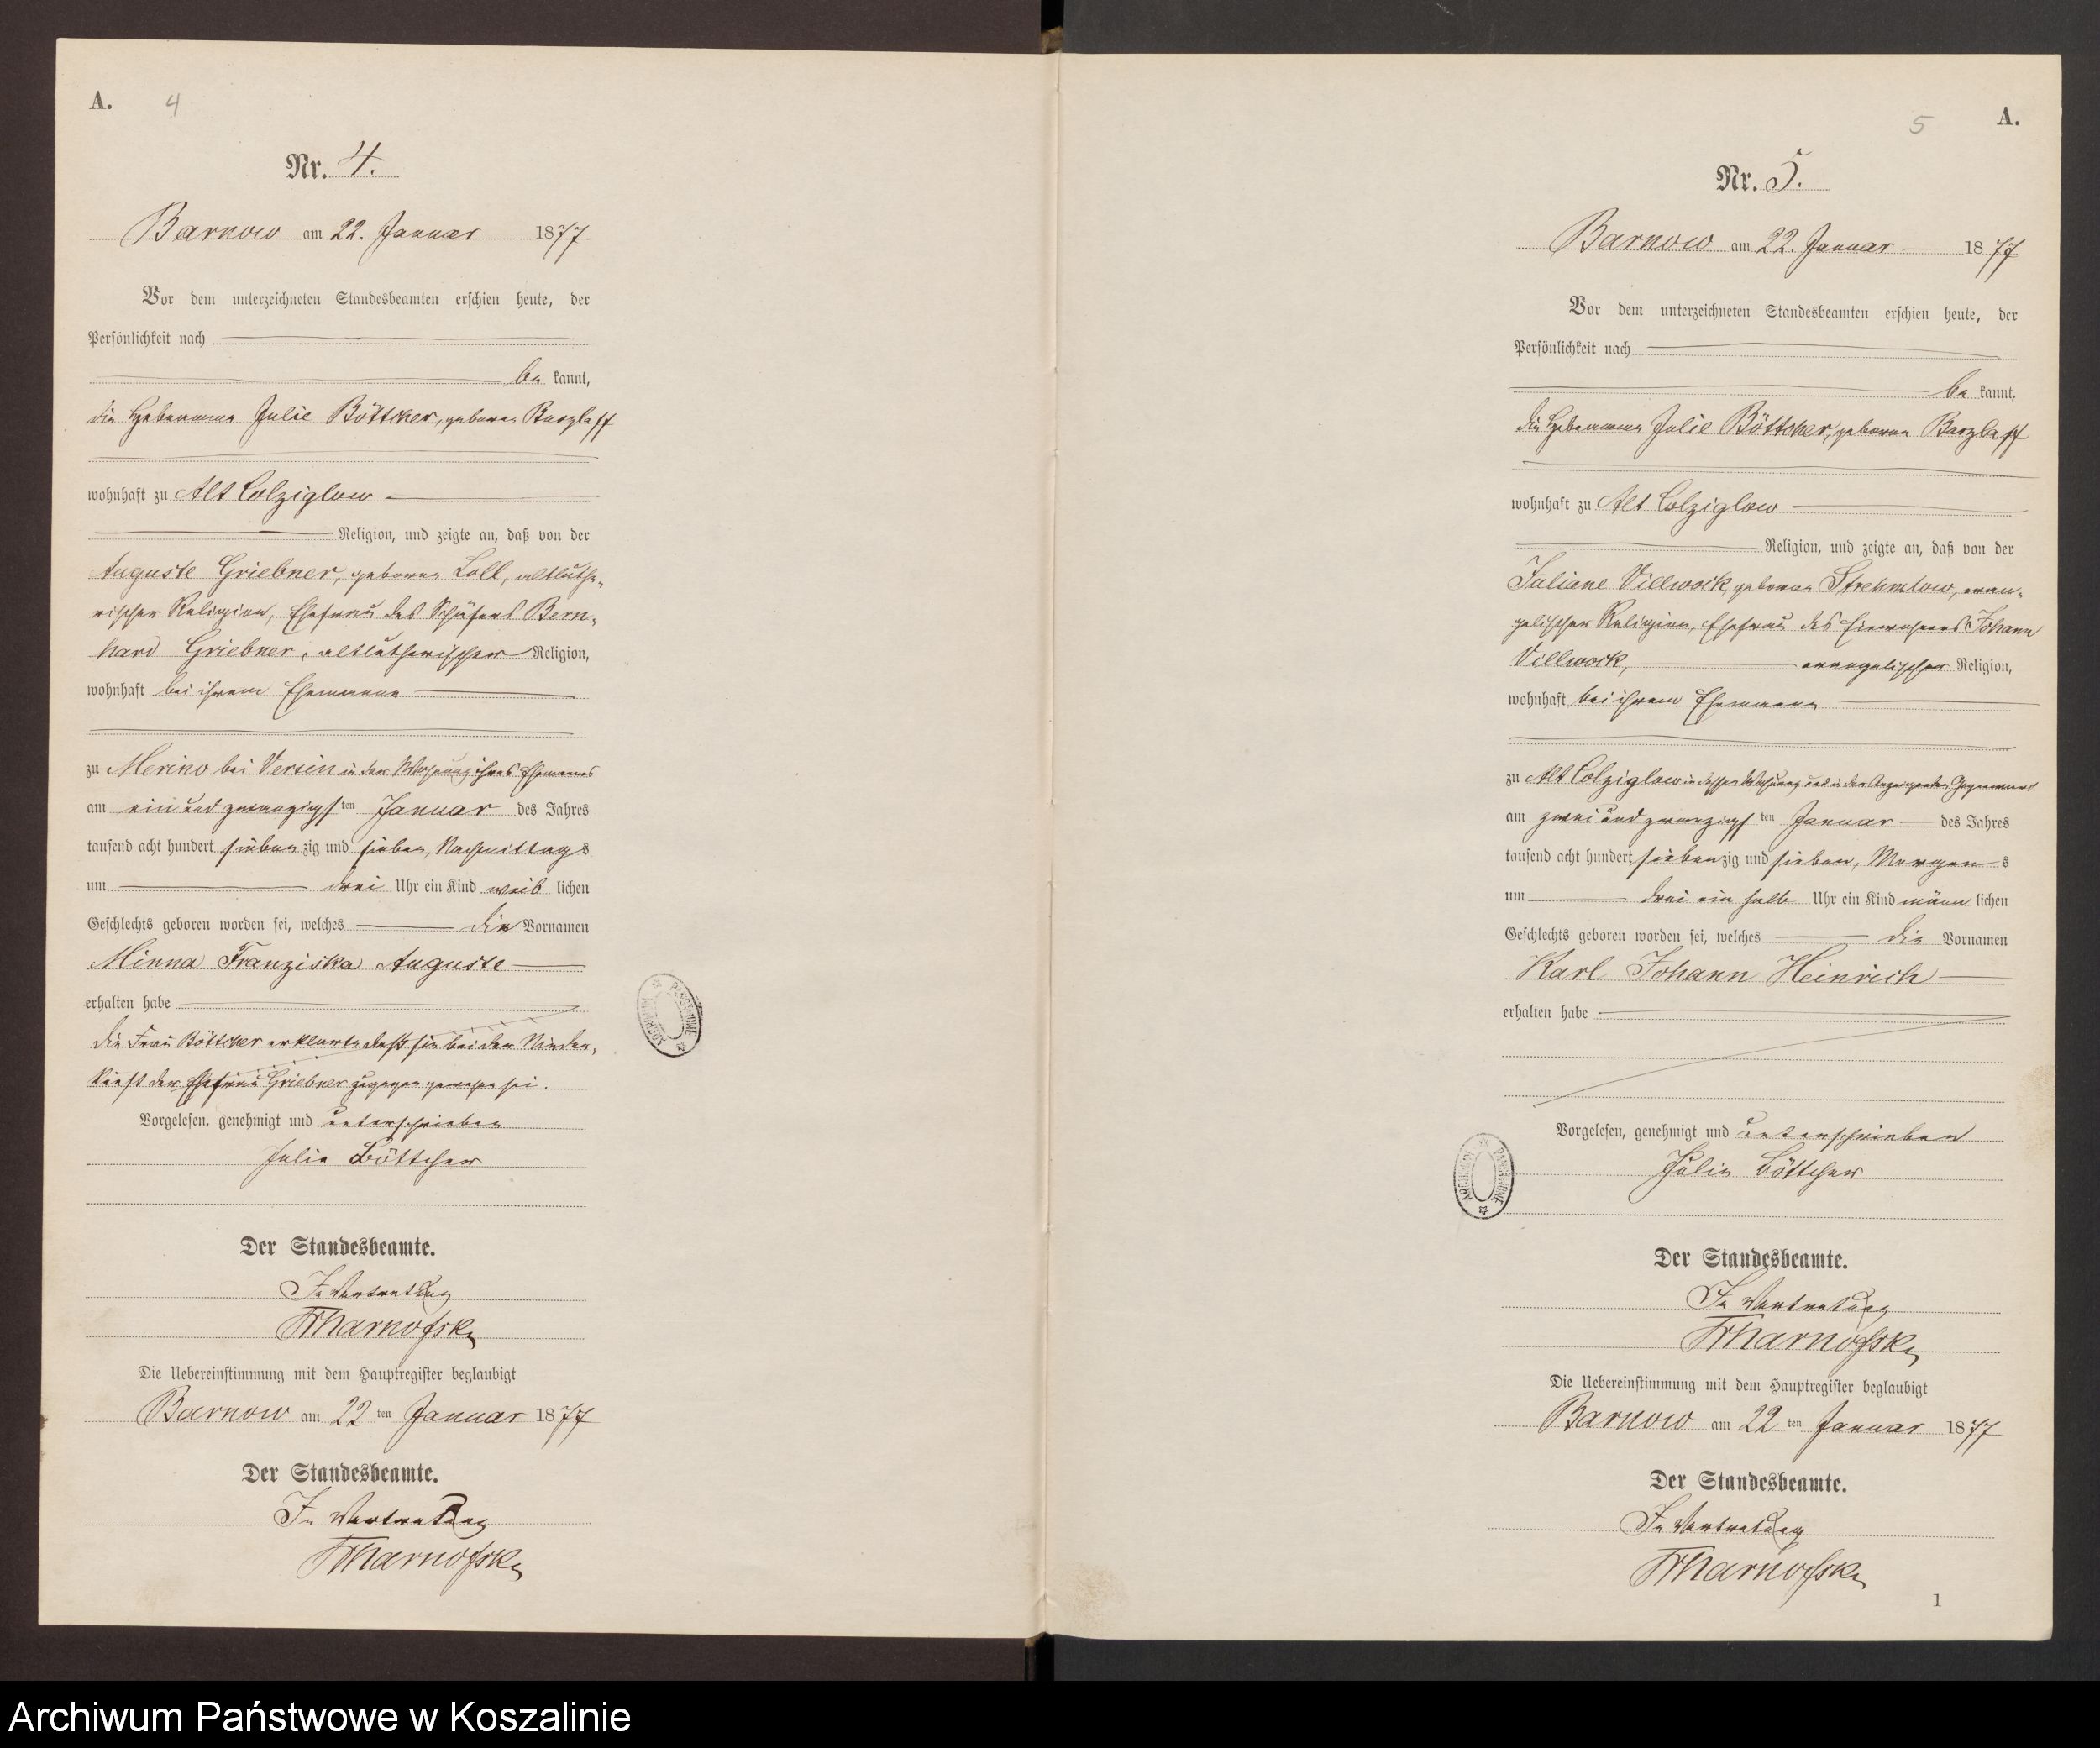 A. 4
Nr. 4.
Barnow am 22. Januar 1877
Vor dem unterzeichneten Standesbeamten erschien heute, der
Persönlichkeit nach
be kannt,
die Hebeamme Julie Böttcher, geborene Barzlaff
wohnhaft zu Alt Colziglow
Religion, und zeigte an, daß von der
Auguste Griebner, geborene Loll, altluthe-
rischer Religion, Ehefrau des Schäfers Bern-
hard Griebner, altlutherischer Religion,
wohnhaft bei ihrem Ehemanne
zu Merino bei Versin in der Wohnung ihres Ehemannes
am ein und zwanzigsten Januar des Jahres
tausend acht hundert siebenzig und sieben, Nachmittags
um drei Uhr ein Kind weib lichen
Geschlechts geboren worden sei, welches die Vornamen
Minna Franziska Auguste
erhalten habe
die Frau Böttcher erklärte daß sie bei der Nieder-
kunft der Ehefrau Griebner zugegen gewesen sei.
Vorgelesen, genehmigt und unterschrieben
Julie Böttcher
Der Standesbeamte.
In Vertretung
Die Uebereinstimmung mit dem Hauptregister beglaubigt
Barnow am 22 ten Januar 1877
Der Standesbeamte.
In Vertretung
5 A.
Nr. 5.
Barnow am 22. Januar 1877
Vor dem unterzeichneten Standesbeamten erschien heute, der
Persönlichkeit nach
be kannt,
die Hebeamme Julie Böttcher, geborene Barzlaff
wohnhaft zu Alt Colziglow
Religion, und zeigte an, daß von der
Juliane Villwock, geborene Strehmlow, evan-
gelischer Religion, Ehefrau des Einwohners Johann
Villwock, evangelischer Religion,
wohnhaft bei ihrem Ehemann
zu Alt Colziglow in dessen Wohnung und in der Anzeigenden Gegenwart
am zwei und zwanzigsten Januar des Jahres
tausend acht hundert siebenzig und sieben, Morgens
um drei ein halb Uhr ein Kind männ lichen
Geschlechts geboren worden sei, welches die Vornamen
Karl Johann Heinrich
erhalten habe
Vorgelesen, genehmigt und unterschrieben
Julie Böttcher
Der Standesbeamte.
In Vertretung
Die Uebereinstimmung mit dem Hauptregister beglaubigt
Barnow am 22 ten Januar 1877
Der Standesbeamte.
In Vertretung
1
Archiwum Państwowe w Koszalinie